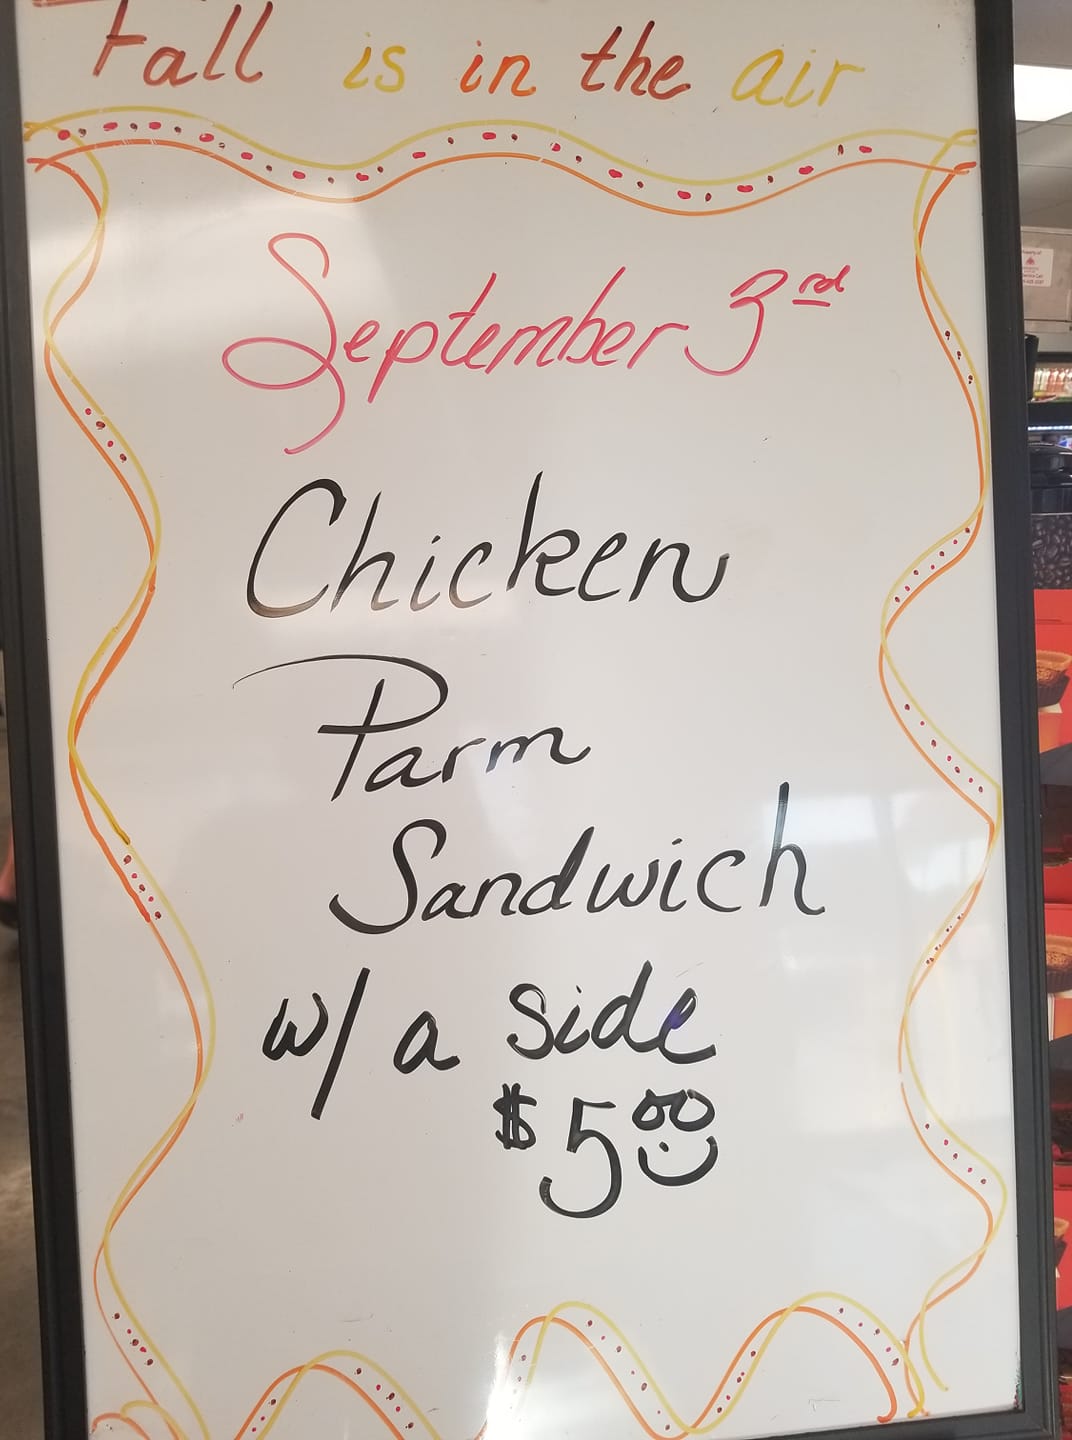 Fall is in the air
September 3rd
Chicken
Parm
Sandwich
w/ a side
$5.00